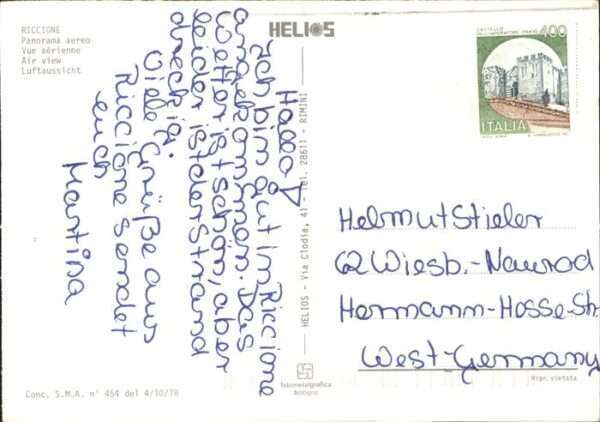 RICCIONE
Panorama aereo
Vue aérienne
Air view
Luftaussicht
HELIOS
CASTELLO
DELL'IMPERATORE PRATO
400
ITALIA
Hallo!
Ich bin gut in Riccione
angekommen. Das
Wetter ist schön, aber
leider ist der Strand
dreckig.
Viele Grüße aus
Riccione sendet
euch
Martina
HELIOS - Via Clodia, 41 - Tel. 28611 - RIMINI
Helmut Stieler
62 Wiesb.-Naurod
Hermann-Hosse-Str
West-Germany
fotometalgrafica
Bologna
Ripr. vietata
Conc. S.M.A. n° 454 del 4/10/78